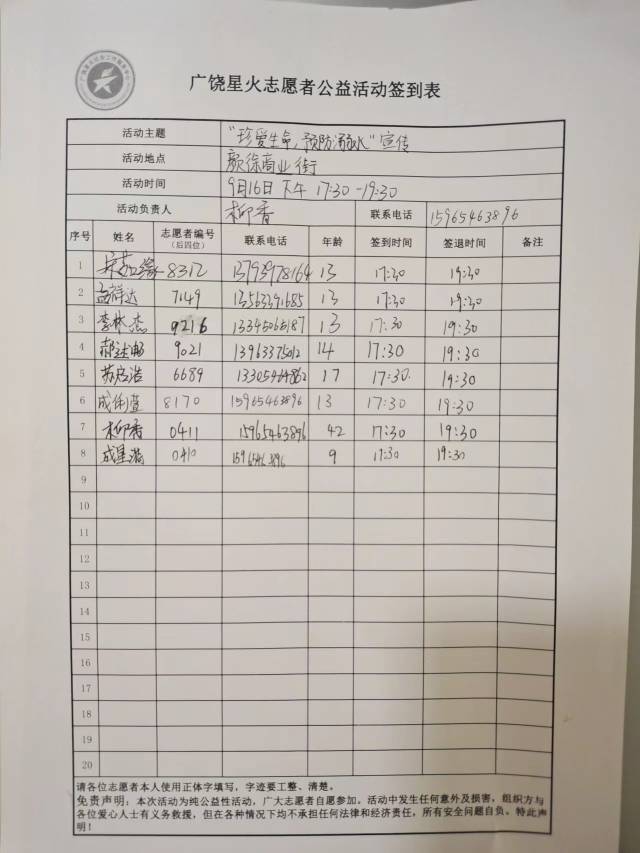 广饶星火志愿者公益活动签到表
活动主题 “珍爱生命,预防溺水”宣传
活动地点 颜徐商业街
活动时间 9月16日 下午 17:30-19:30
活动负责人 柳香 联系电话 15965463896
序号 姓名 志愿者编号 (后四位) 联系电话 年龄 签到时间 签退时间 备注
1 8312 13793978164 13 17:30 19:30
2 孟祥达 7149 13563391685 13 17:30 19:30
3 李林杰 9216 13 17:30 19:30
4 9021 13963375012 14 17:30 19:30
5 苏启浩 6689 13305464862 17 17:30 19:30
6 8170 15965463896 13 17:30 19:30
7 柳香 0411 15965463896 42 17:30 19:30
8 0410 9 17:30 19:30
9
10
11
12
13
14
15
16
17
18
19
20
请各位志愿者本人使用正体字填写,字迹要工整、清楚。
免责声明:本次活动为纯公益性活动,广大志愿者自愿参加。活动中发生任何意外及损害,组织方与
各位爱心人士有义务救援,但在各种情况下均不承担任何法律和经济责任,所有安全问题自负。特此声
明!